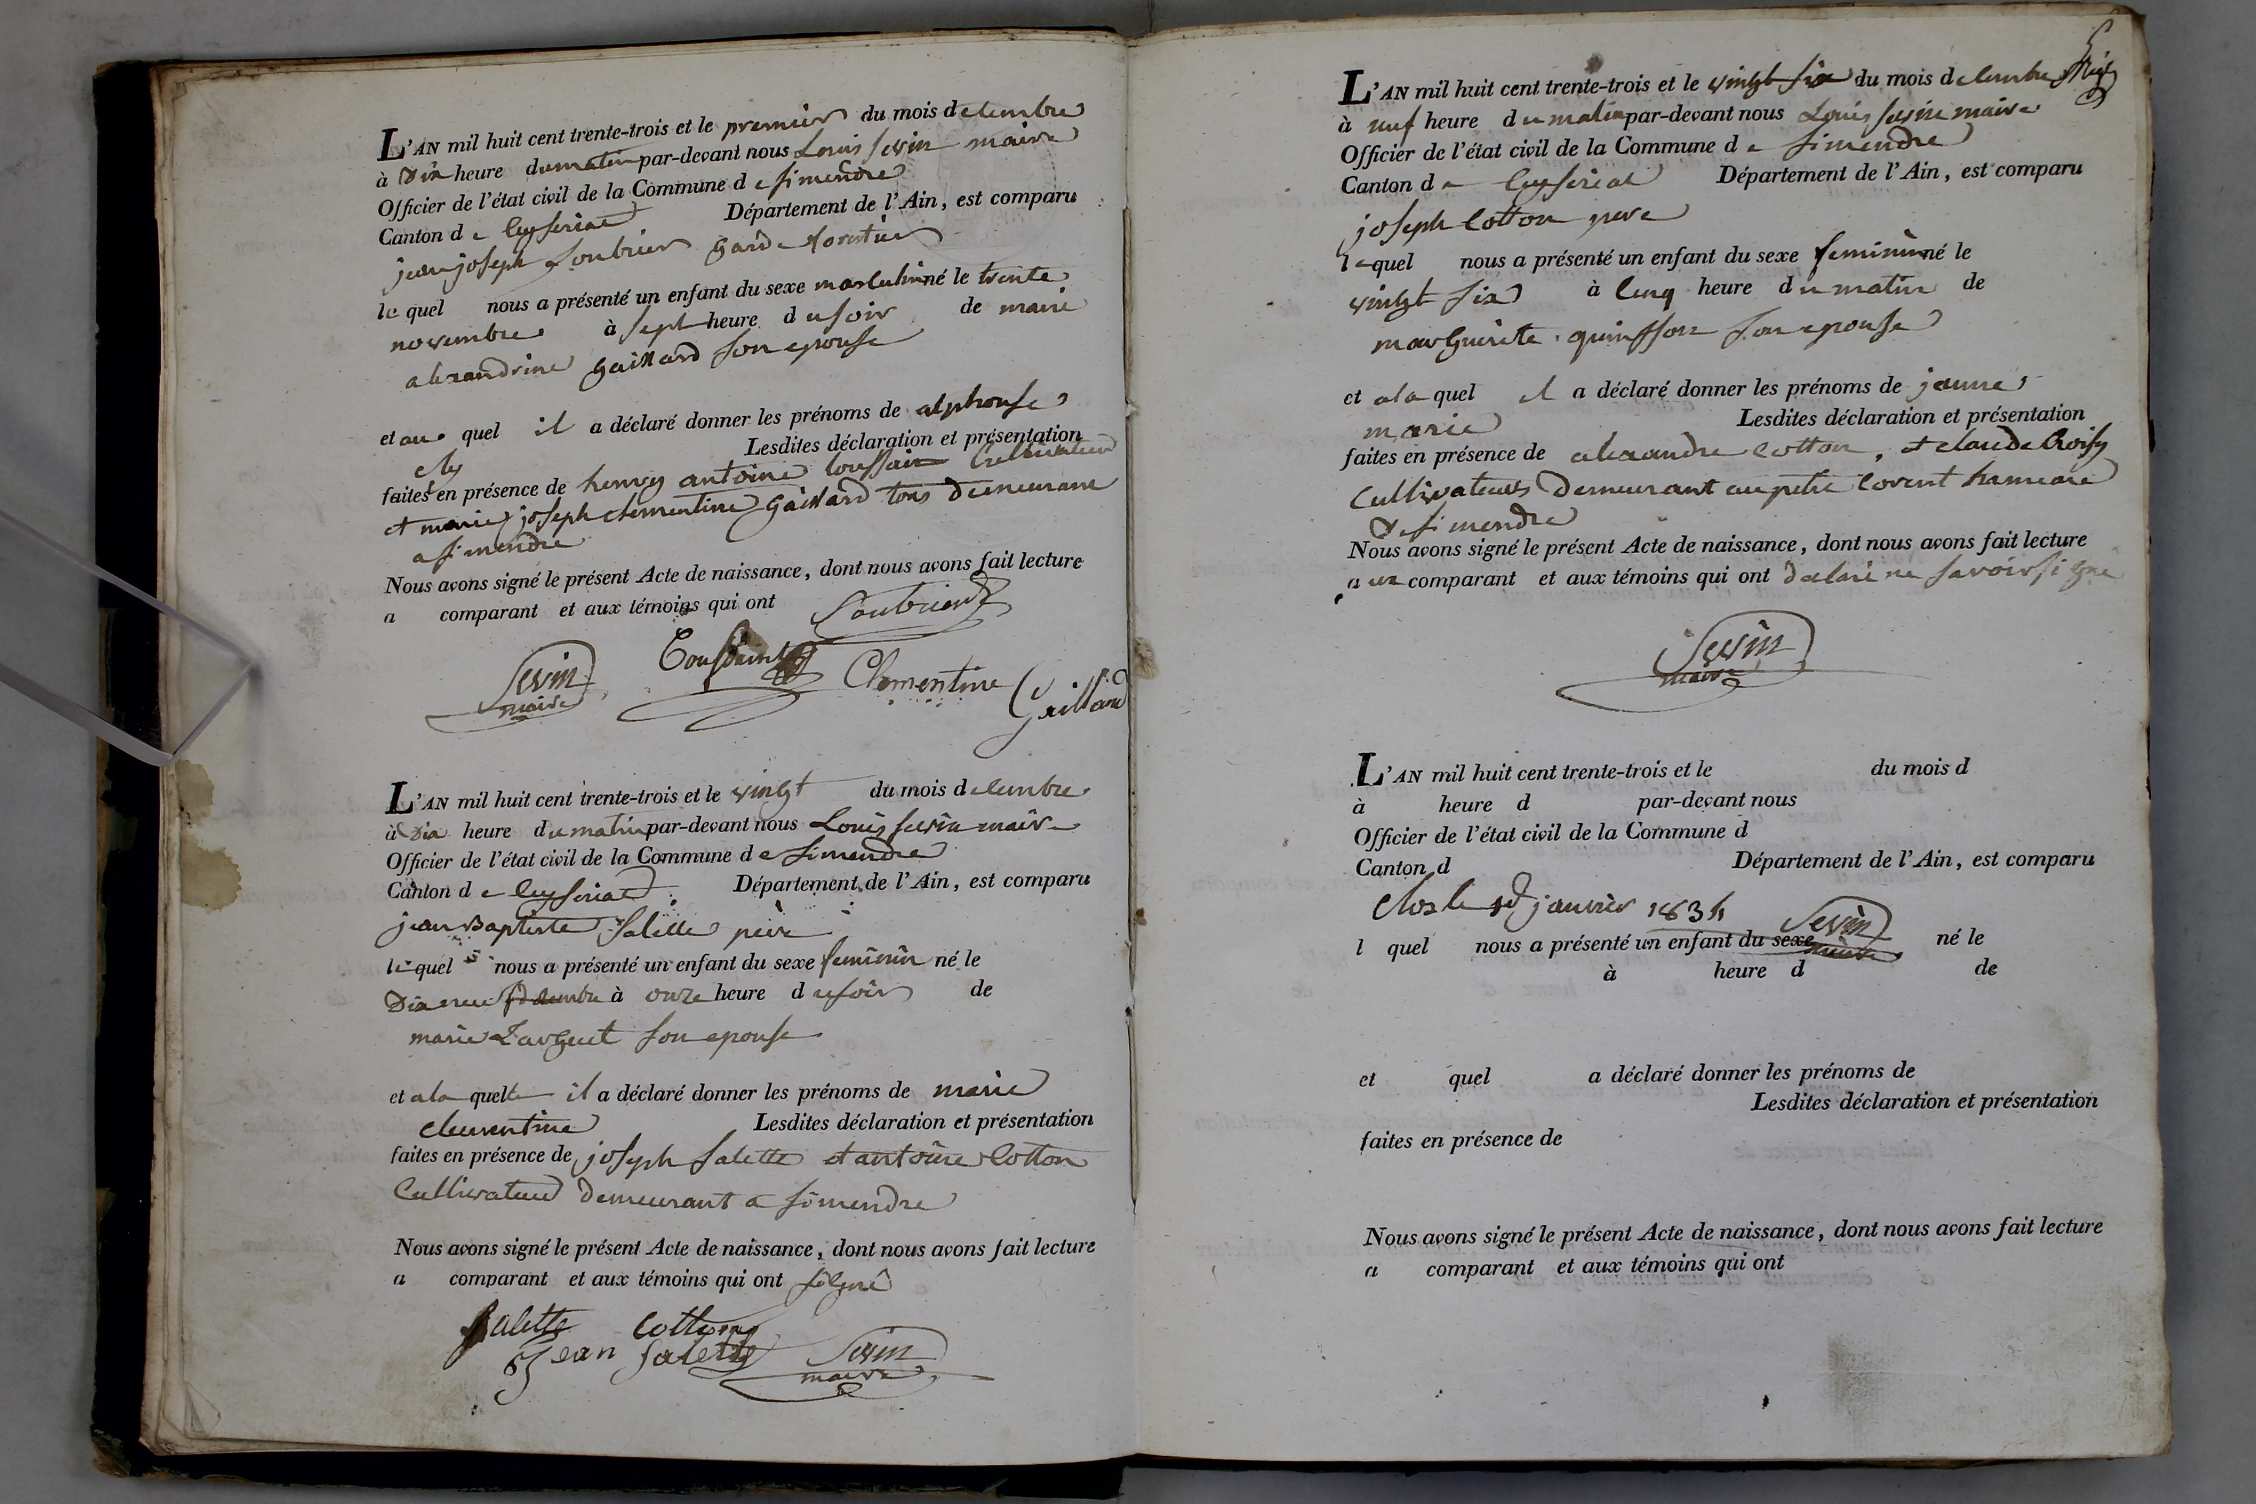 L'AN mil huit cent trente-trois et le premier du mois decembre
à Dix heure du matin par-devant nous Louis sevin maire
Officier de l'état civil de la Commune de simendre
Canton de Ceyseriat Département de l'Ain, est comparu
jean joseph Soubrier garde forestier
le quel nous a présenté un enfant du sexe masculin né le trente
novembre à sept heure du soir de marie
alexandrine gaillard son epouse
et au quel il a déclaré donner les prénoms de alphonse
Lesdites déclaration et présentation
faites en présence de henry antoine toussain Cultivateur
et marie joseph clementine gaillard tous demeurant
a simendre
Nous avons signé le présent Acte de naissance, dont nous avons fait lecture
a comparant et aux témoins qui ont Soubrier
Sevin Toussaint Clementine Gaillard
maire
L'AN mil huit cent trente-trois et le vingt du mois decembre
à Dix heure du matin par-devant nous Louis sevin maire
Officier de l'état civil de la Commune de simendre
Canton de Ceyseriat Département de l'Ain, est comparu
jean Baptiste salette père
le quel nous a présenté un enfant du sexe feminin né le
Dix neuf decembre à onze heure du soir de
marie son epouse
et a la quelle il a déclaré donner les prénoms de marie
clementine Lesdites déclaration et présentation
faites en présence de joseph salette et antoine Cotton
Cultivateur demeurant a simendre
Nous avons signé le présent Acte de naissance, dont nous avons fait lecture
a comparant et aux témoins qui ont signé
salette cotton
Jean salette Sevin
maire
L'AN mil huit cent trente-trois et le vingt six du mois decembre
à neuf heure du matin par-devant nous Louis sevin maire
Officier de l'état civil de la Commune de simendre
Canton de Ceyseriat Département de l'Ain, est comparu
joseph Cotton pere
le quel nous a présenté un enfant du sexe feminin né le
vingt six à cinq heure du matin de
marguerite quinsson son epouse
et a la quel il a déclaré donner les prénoms de jeanne
marie Lesdites déclaration et présentation
faites en présence de alexandre cotton, et claude
Cultivateurs demeurant au petit Corent hameau
De simendre
Nous avons signé le présent Acte de naissance, dont nous avons fait lecture
a ux comparant et aux témoins qui ont declaré ne savoir signé
Sevin
maire
L'AN mil huit cent trente-trois et le du mois d
à heure d par-devant nous
Officier de l'état civil de la Commune d
Canton d Département de l'Ain, est comparu
Clos le janvier 1834 Sevin
l quel nous a présenté un enfant du sexe maire né le
à heure d de
et quel a déclaré donner les prénoms de
Lesdites déclaration et présentation
faites en présence de
Nous avons signé le présent Acte de naissance, dont nous avons fait lecture
a comparant et aux témoins qui ont